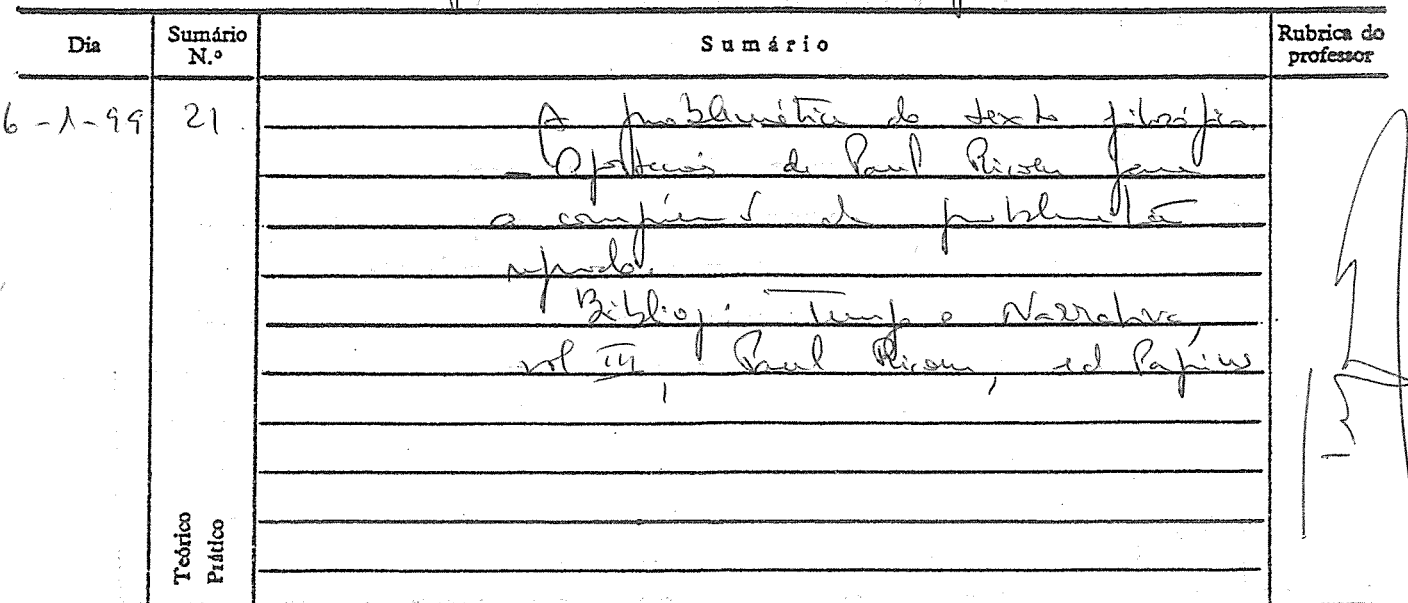 Dia
Sumário N.º
Sumário
Rubrica do professor
6-1-99
21.
A problemática do texto filosófico.
de Paul Ricoeur para
a de
Bibliog: Tempo e Narrativa,
vol III, Paul Ricoeur, ed Papirus
Teórico
Prático